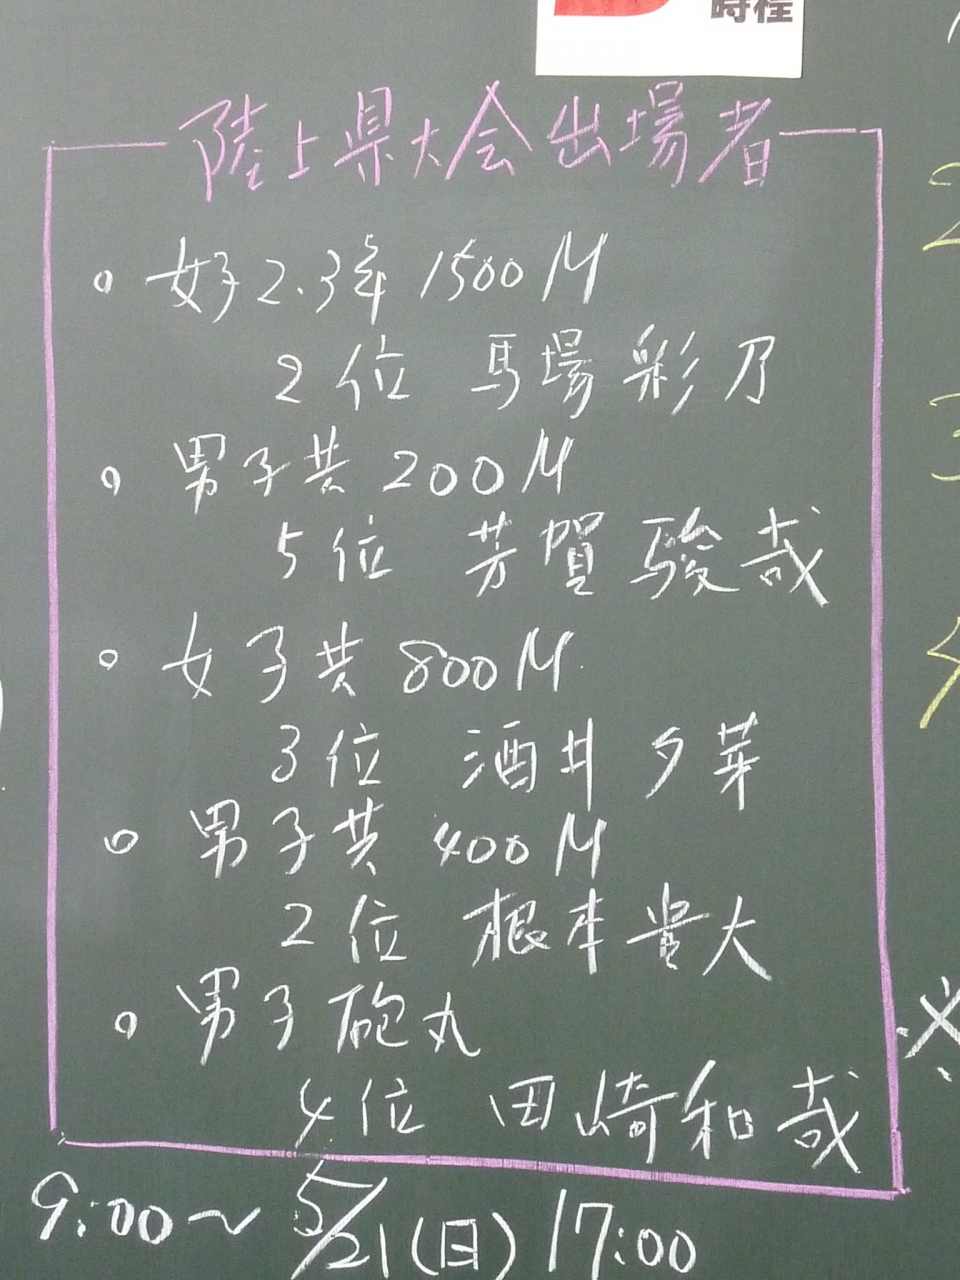 時程
陸上県大会出場者
○ 女子2.3年 1500M
2位 馬場 彩乃
○ 男子共 200M
5位 芳賀 駿哉
○ 女子共 800M
3位 酒井 夕芽
○ 男子共 400M
2位 根本 貴大
○ 男子 砲丸
4位 田崎 和哉
9:00〜 5/21(日) 17:00
2
3
4
※